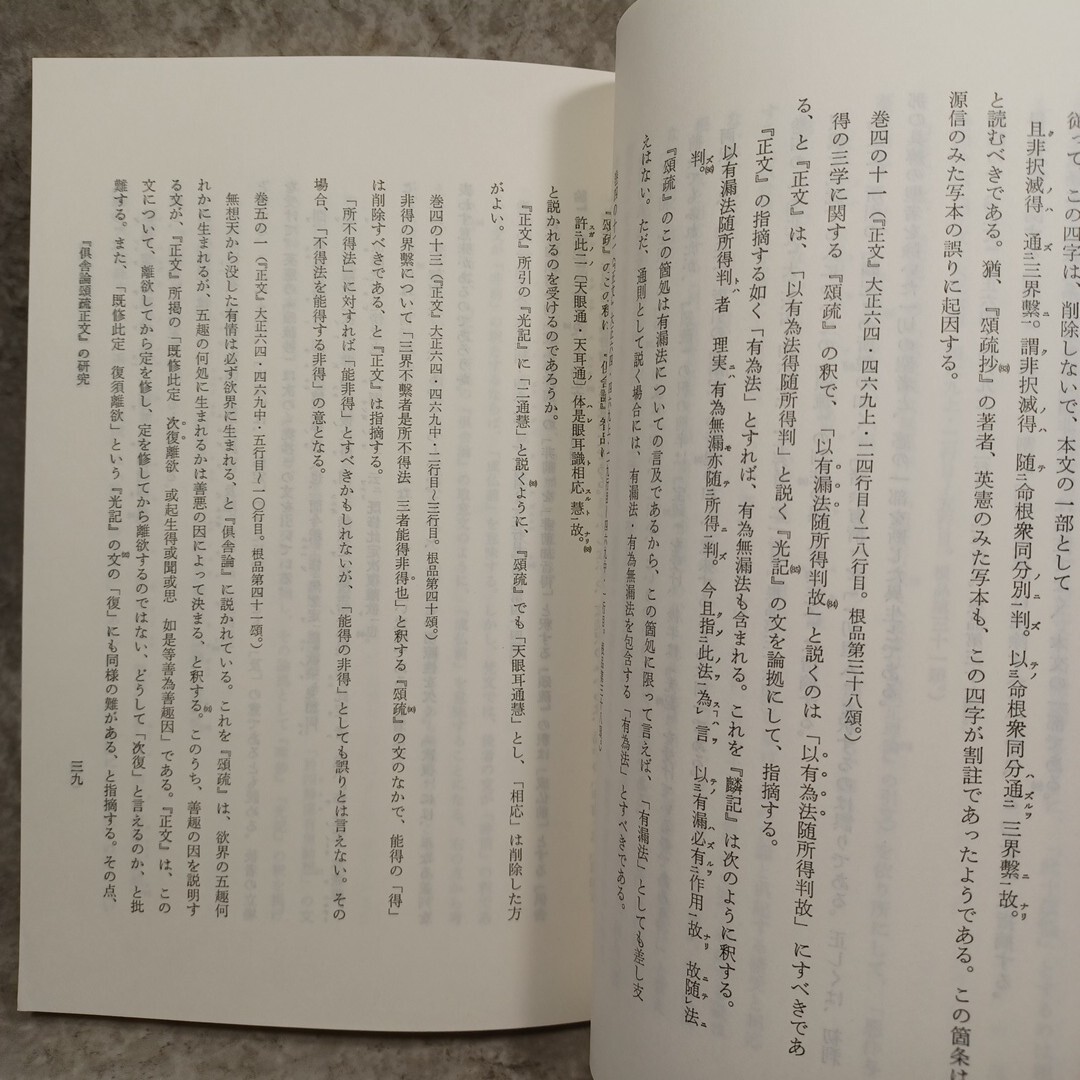 従って、この四字は、削除しないで、本文の一部として
且非択滅得 通三界繫。謂非択滅得 随命根衆同分別判。以命根衆同分通三界繫故。
と読むべきである。猶、『頌疏抄』の著者、英憲のみた写本も、この四字が割註であったようである。この箇条は
源信のみた写本の誤りに起因する。
巻四の十一（『正文』大正六四・四六九上・二四行目～二八行目。根品第三十八頌。）
得の三学に関する『頌疏』の釈で、「以有漏法随所得判故」と説くのは「以有為法随所得判故」にすべきであ
る、と『正文』は、「以有為法得随所得判」と説く『光記』の文を論拠にして、指摘する。
『正文』の指摘する如く「有為法」とすれば、有為無漏法も含まれる。これを『麟記』は次のように釈する。
以有漏法随所得判者 理実有為無漏亦随所得判。今且指此法為言 以有漏必有作用故 故随法
判。
『頌疏』のこの箇処は有漏法についての言及であるから、この箇処に限って言えば、「有漏法」としても差し支
えはない。ただ、通則として説く場合には、有漏法・有為無漏法を包含する「有為法」とすべきである。
許此二〔天眼通・天耳通〕体是眼耳識相応慧故。
と説かれるのを受けるのであろうか。
『正文』所引の『光記』に「二通慧」と説くように、『頌疏』でも「天眼耳通慧」とし、「相応」は削除した方
がよい。
巻四の十三（『正文』大正六四・四六九中・二行目～三行目。根品第四十頌。）
非得の界繫について「三界不繫者是所不得法 三者能得非得也」と釈する『頌疏』の文のなかで、能得の「得」
は削除すべきである、と『正文』は指摘する。
「所不得法」に対すれば「能非得」とすべきかもしれないが、「能得の非得」としても誤りとは言えない。その
場合、「不得法を能得する非得」の意となる。
巻五の一（『正文』大正六四・四六九中・五行目～一〇行目。根品第四十一頌。）
無想天から没した有情は必ず欲界に生まれる、と『俱舎論』に説かれている。これを『頌疏』は、欲界の五趣何
れかに生まれるが、五趣の何処に生まれるかは善悪の因によって決まる、と釈する。このうち、善趣の因を説明す
る文が、『正文』所掲の「既修此定 次復離欲 或起生得或聞或思 如是等善為善趣因」である。『正文』は、この
文について、離欲してから定を修し、定を修してから離欲するのではない、どうして「次復」と言えるのか、と批
難する。また、「既修此定 復須離欲」という『光記』の文の「復」にも同様の難がある、と指摘する。その点、
『俱舎論頌疏正文』の研究
三九